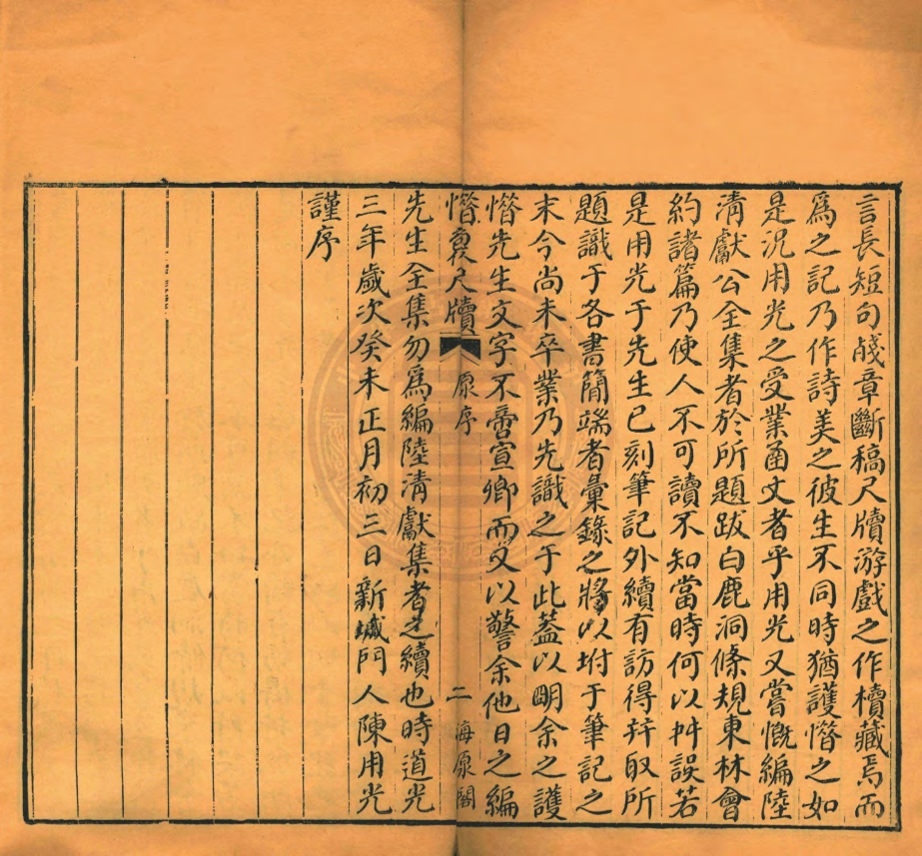 言長短句牋章斷稿尺牘游戲之作櫝藏焉而
爲之記乃作詩美之彼生不同時猶護惜之如
是況用光之受業函丈者乎用光又嘗慨編陸
清獻公全集者於所題跋白鹿洞條規東林會
約諸篇乃使人不可讀不知當時何以舛誤若
是用光于先生已刻筆記外續有訪得幷取所
題識于各書簡端者彙錄之將以坿于筆記之
末今尚未卒業乃先識之于此葢以朙余之護
惜先生文字不啻宣卿而又以警余他日之編
惜裒尺牘 原序 二 海原閣
先生全集勿爲編陸清獻集者之續也時道光
三年歲次癸未正月初三日新城門人陳用光
謹序